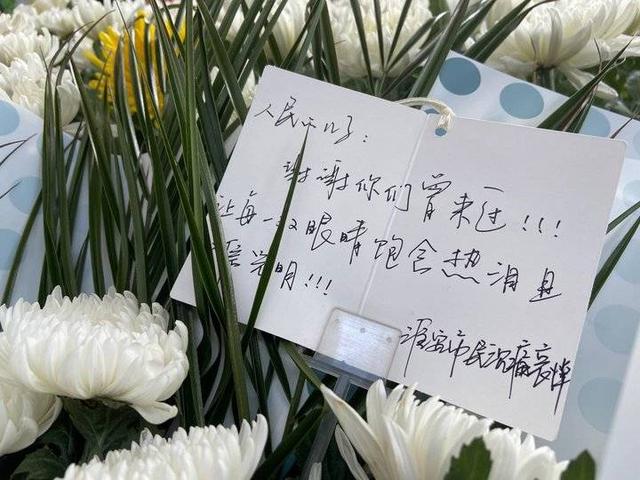 人民儿子：
谢谢你们曾来过!!!
让每一双眼睛饱含热泪且
光明!!!
淮安市民沉痛哀悼